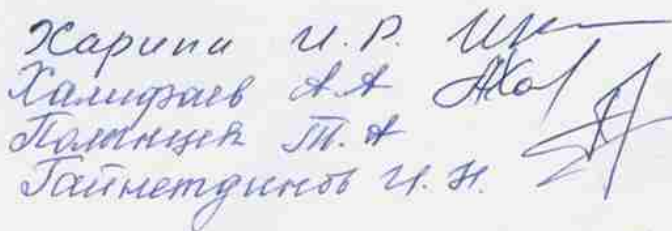 Харипи И.Р.
Халифаев А.А
Поленцев Т.А
Гайнетдинов И.Н.